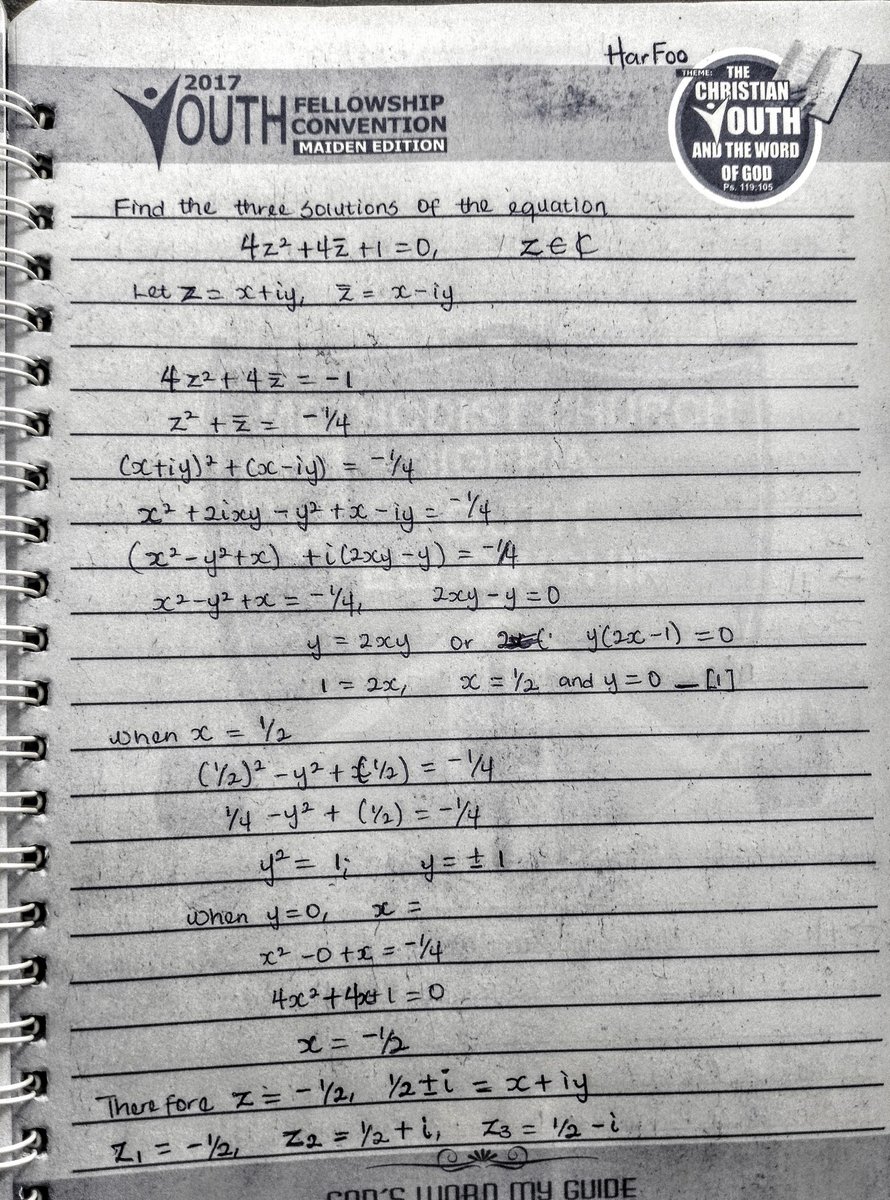 HarFoo
2017
YOUTH FELLOWSHIP CONVENTION
MAIDEN EDITION
THEME: THE
CHRISTIAN
YOUTH
AND THE WORD
OF GOD
Ps. 119:105
Find the three solutions of the equation
4z² + 4z̄ + 1 = 0, z ∈ ℂ
Let z = x+iy, z̄ = x-iy
4z² + 4z̄ = -1
z² + z̄ = -1/4
(x+iy)² + (x-iy) = -1/4
x² + 2ixy - y² + x - iy = -1/4
(x² - y² + x) + i(2xy - y) = -1/4
x² - y² + x = -1/4, 2xy - y = 0
y = 2xy or y(2x-1) = 0
1 = 2x, x = 1/2 and y = 0 — [1]
when x = 1/2
(1/2)² - y² + (1/2) = -1/4
1/4 - y² + (1/2) = -1/4
y² = 1; y = ± 1
when y = 0, x =
x² - 0 + x = -1/4
4x² + 4x + 1 = 0
x = -1/2
Therefore z = -1/2, 1/2 ± i = x + iy
z₁ = -1/2, z₂ = 1/2 + i, z₃ = 1/2 - i
GOD'S WORD MY GUIDE